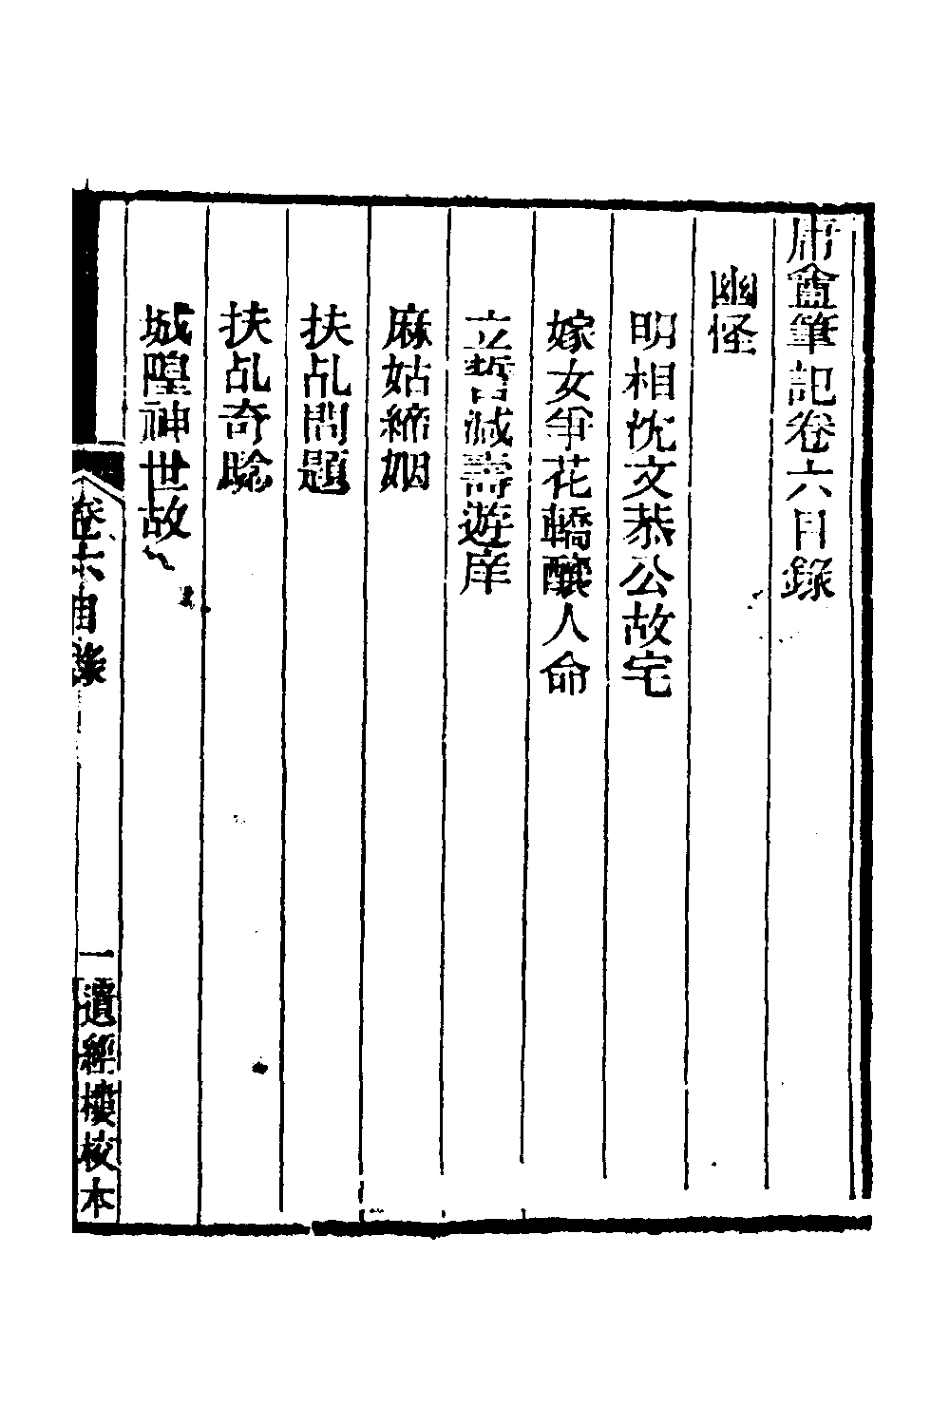 庸盦筆記卷六目錄
幽怪
明相沈文恭公故宅
嫁女爭花轎釀人命
立誓減壽遊庠
麻姑締姻
扶乩問題
扶乩奇驗
城隍神世故
卷六目錄
一
遺經樓校本